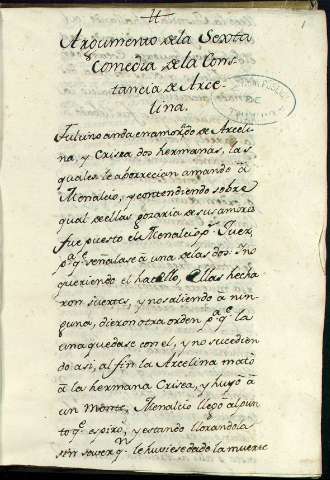 1
Argumento de la Sexta
Comedia de la Cons-
tancia de Arce-
lina.
Fulcino anda enamorado de Arceli-
na, y Crisea dos hermanas, las
quales le aborrecian amando à
Menalcio, y contendiendo sobre
qual de ellas gozaria de sus amores
fue puesto el Menalcio pr. Juez
pa. qe. señalase à una de las dos: Ino
queriendo el hacello, ellas hecha
ron suertes, y no saliendo à nin-
guna, dieron otra orden pa. qe. la
una quedase con el, y no sucedien
do asi, al fin la Arcelina matò
à la hermana Crisea, y huyò à
un monte, Menalcio llegò al pun-
to qe. espirò, y estando llorandola
sin saver qn. le huviese dado la muerte